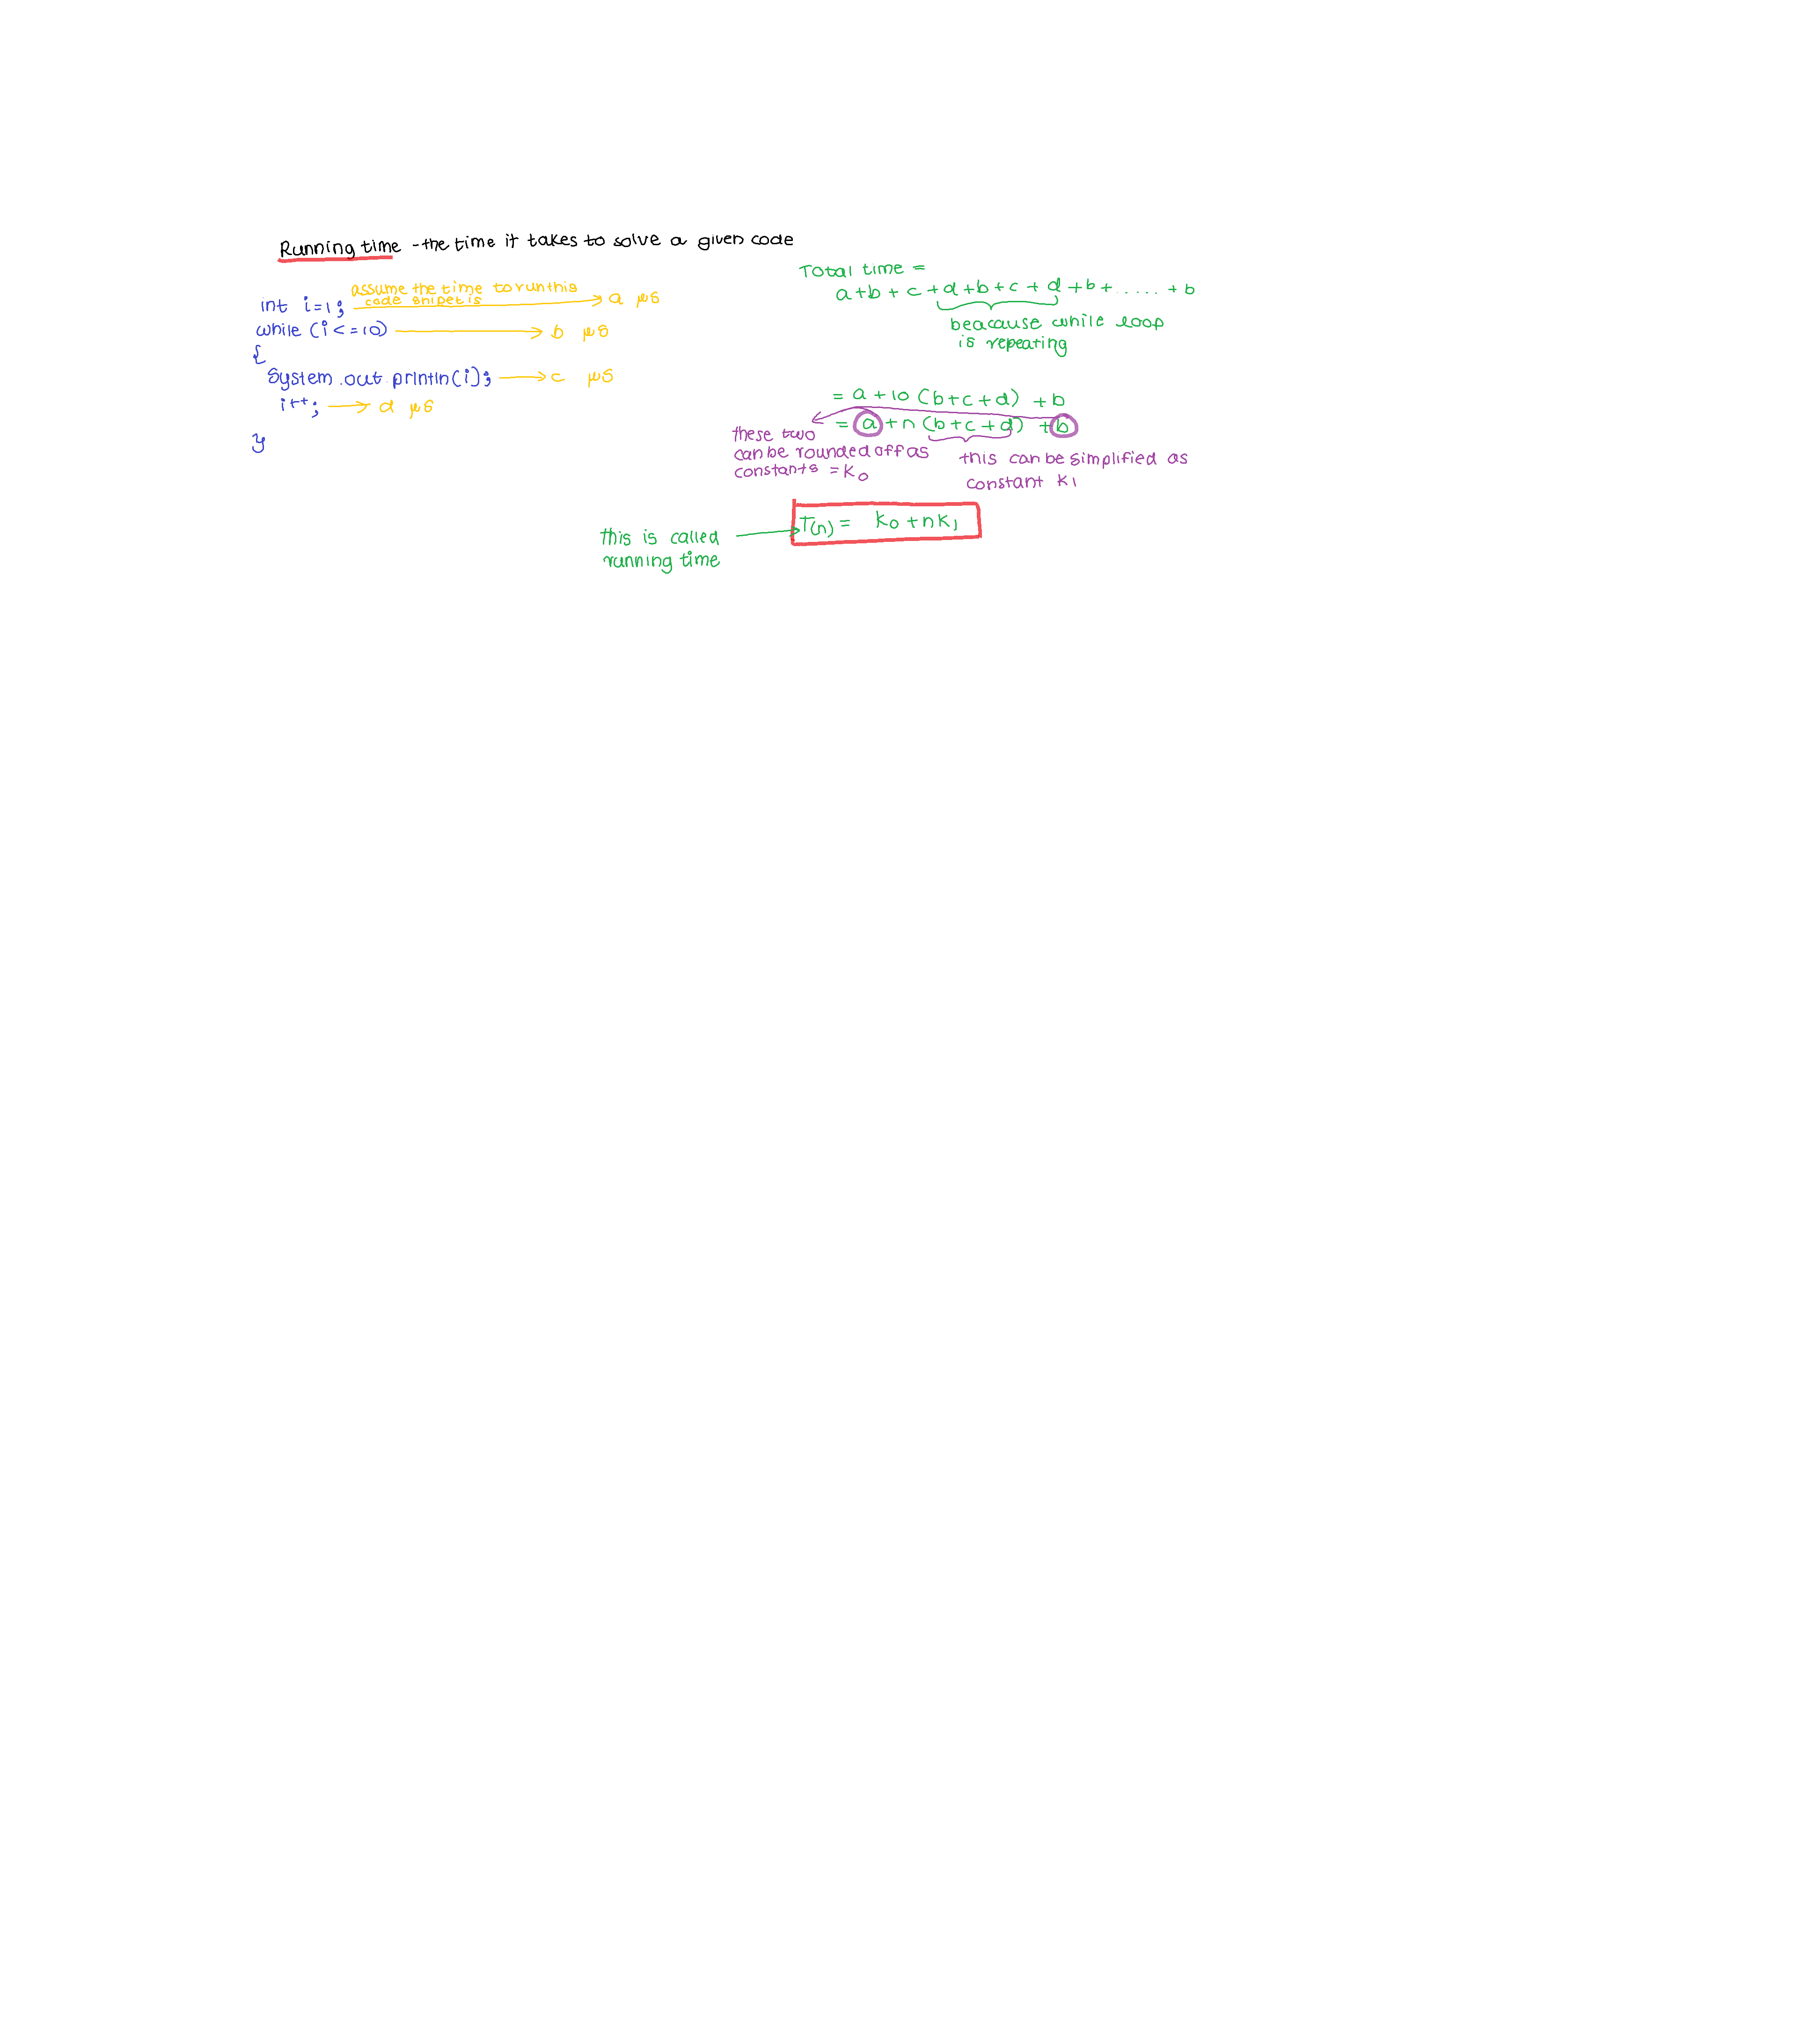 Running time - the time it takes to solve a given code
int i=1; assume the time to run this code snipet is → a μs
while (i <= 10) → b μs
{
System.out.println(i); → c μs
i++; → d μs
}
Total time =
a+b+c+d+b+c+d+b+.....+b
beacause while loop
is repeating
= a+10(b+c+d) +b
= a+n(b+c+d) +b
these two
can be rounded off as
constants = K₀
this can be simplified as
constant K₁
T(n) = K₀+nK₁
this is called
running time